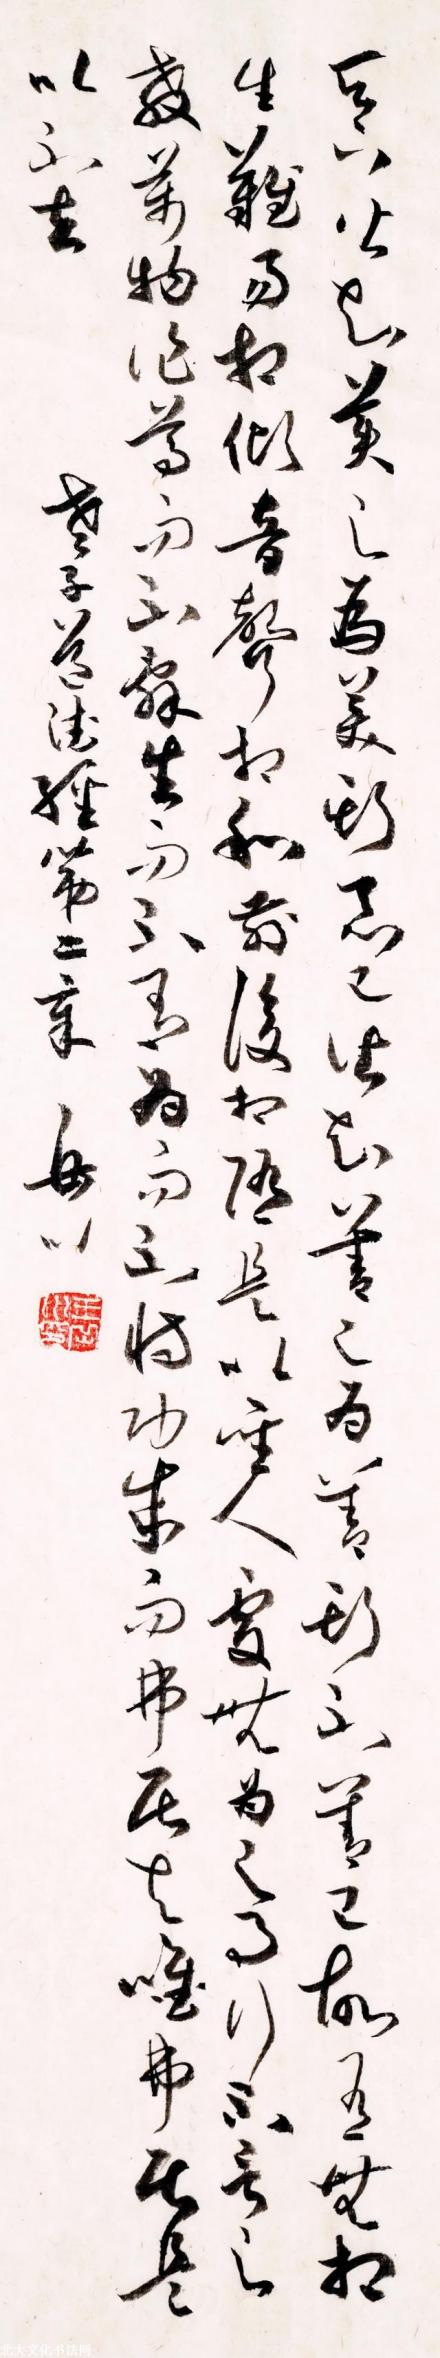 天下皆知美之為美斯惡已皆知善之為善斯不善已故有無相
生難易相傾音聲相和前後相隨是以聖人處無為之事行不言之
教萬物作焉而不辭生而不有為而不恃功成而弗居夫唯弗居是
以不去
老子道德經第二章
北大文化书法网